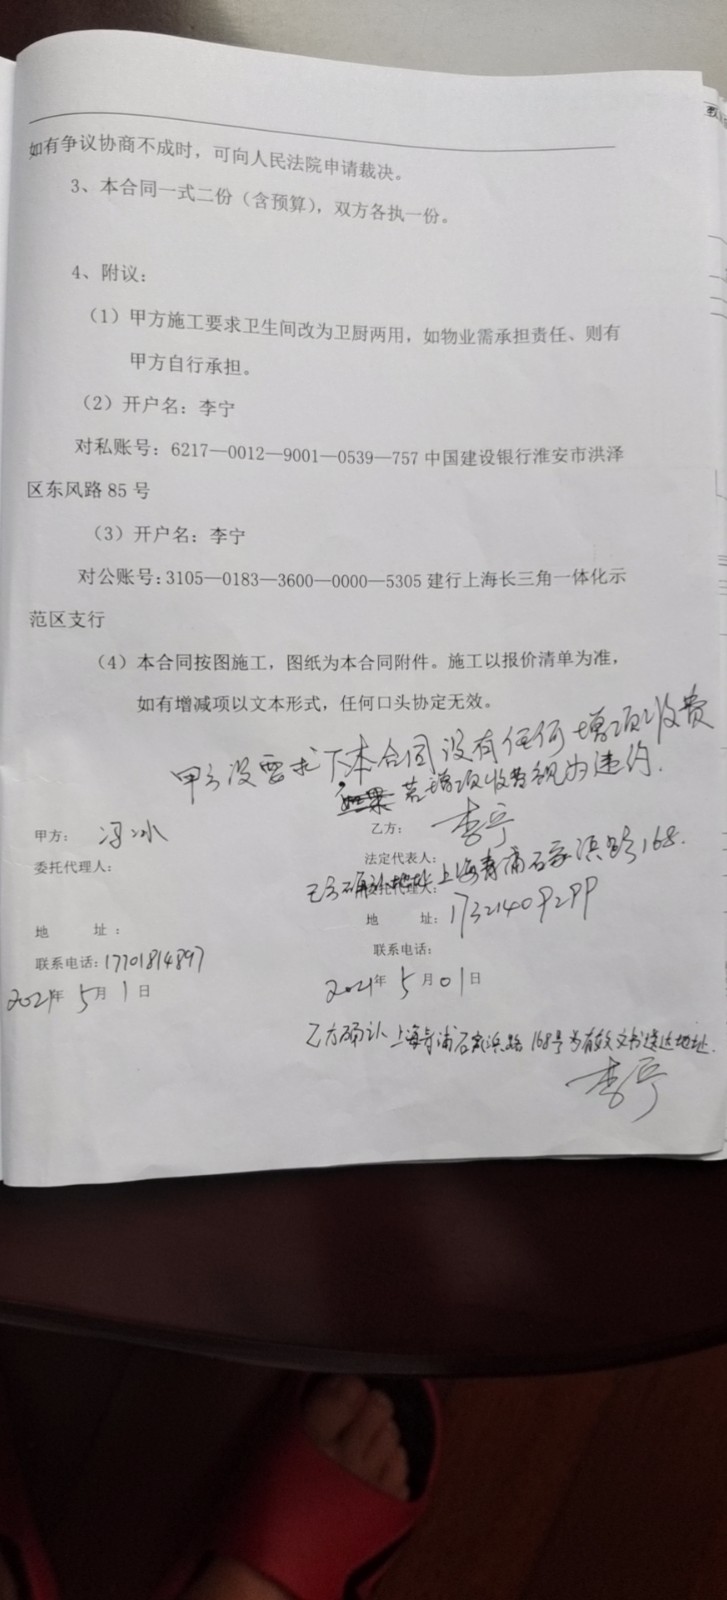 如有争议协商不成时，可向人民法院申请裁决。
3、本合同一式二份（含预算），双方各执一份。
4、附议：
（1）甲方施工要求卫生间改为卫厨两用，如物业需承担责任、则有
甲方自行承担。
（2）开户名：李宁
对私账号：6217—0012—9001—0539—757 中国建设银行淮安市洪泽
区东风路 85 号
（3）开户名：李宁
对公账号：3105—0183—3600—0000—5305 建行上海长三角一体化示
范区支行
（4）本合同按图施工，图纸为本合同附件。施工以报价清单为准，
如有增减项以文本形式，任何口头协定无效。
甲方没要求下本合同没有任何增项收费
若增项收费视为违约.
甲方：冯冰
乙方：李宁
委托代理人：
法定代表人：
上海青浦石家浜路168.
地 址：
地 址：17321409299
联系电话：17701814897
联系电话：
2021年 5月 1日
2021年 5月 01日
乙方确认上海青浦石家浜路 168号为有效文书送达地址.
李宁